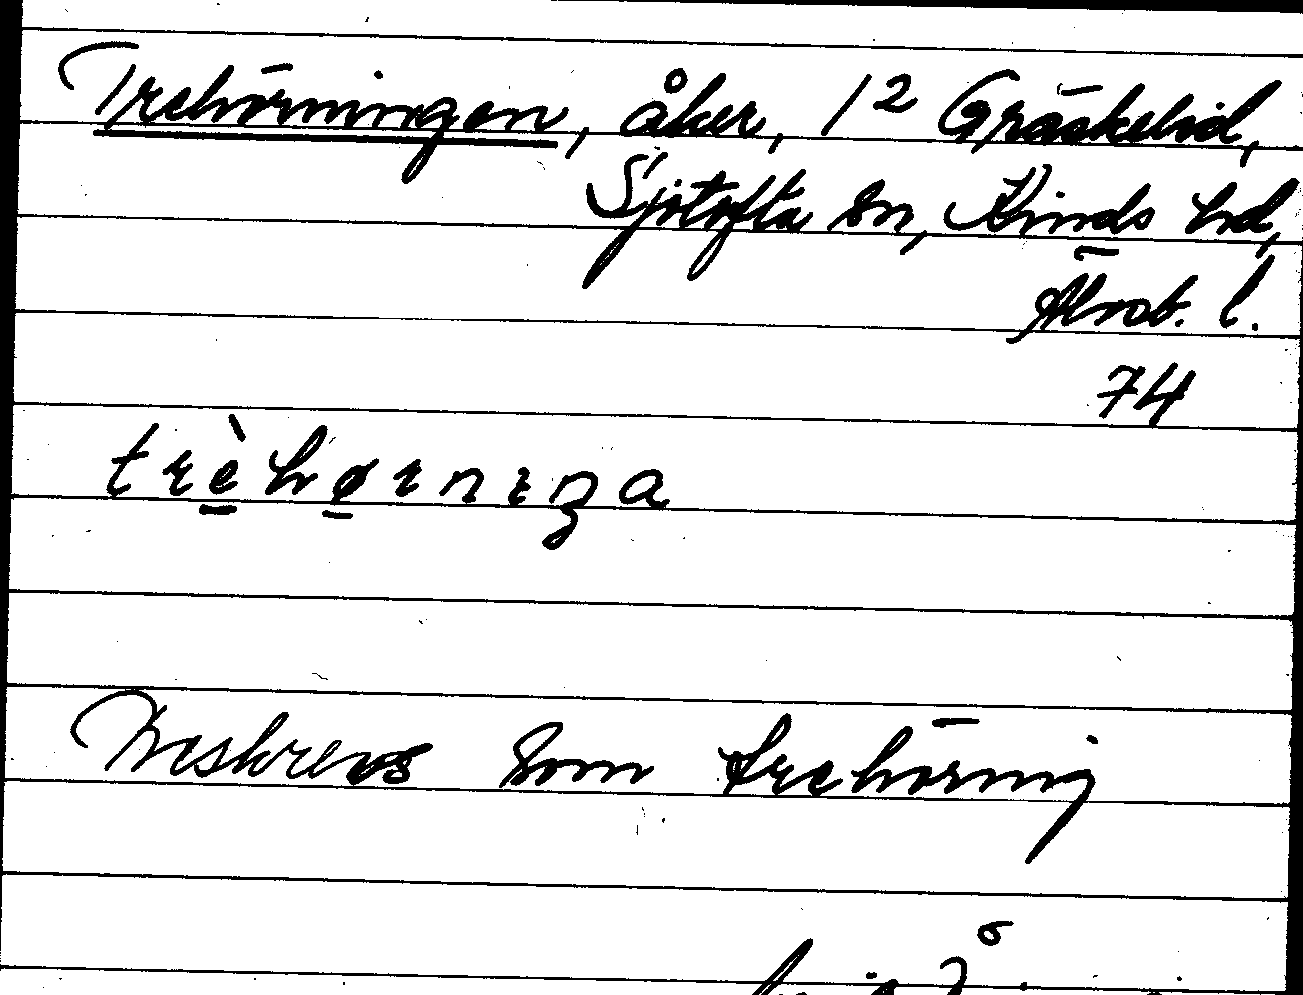 Trehörningen, åker, 1² Gräskelid,
Sjötofta sn, Kinds hd,
Älvsb. l.
74
Beskrevs som trehörnig